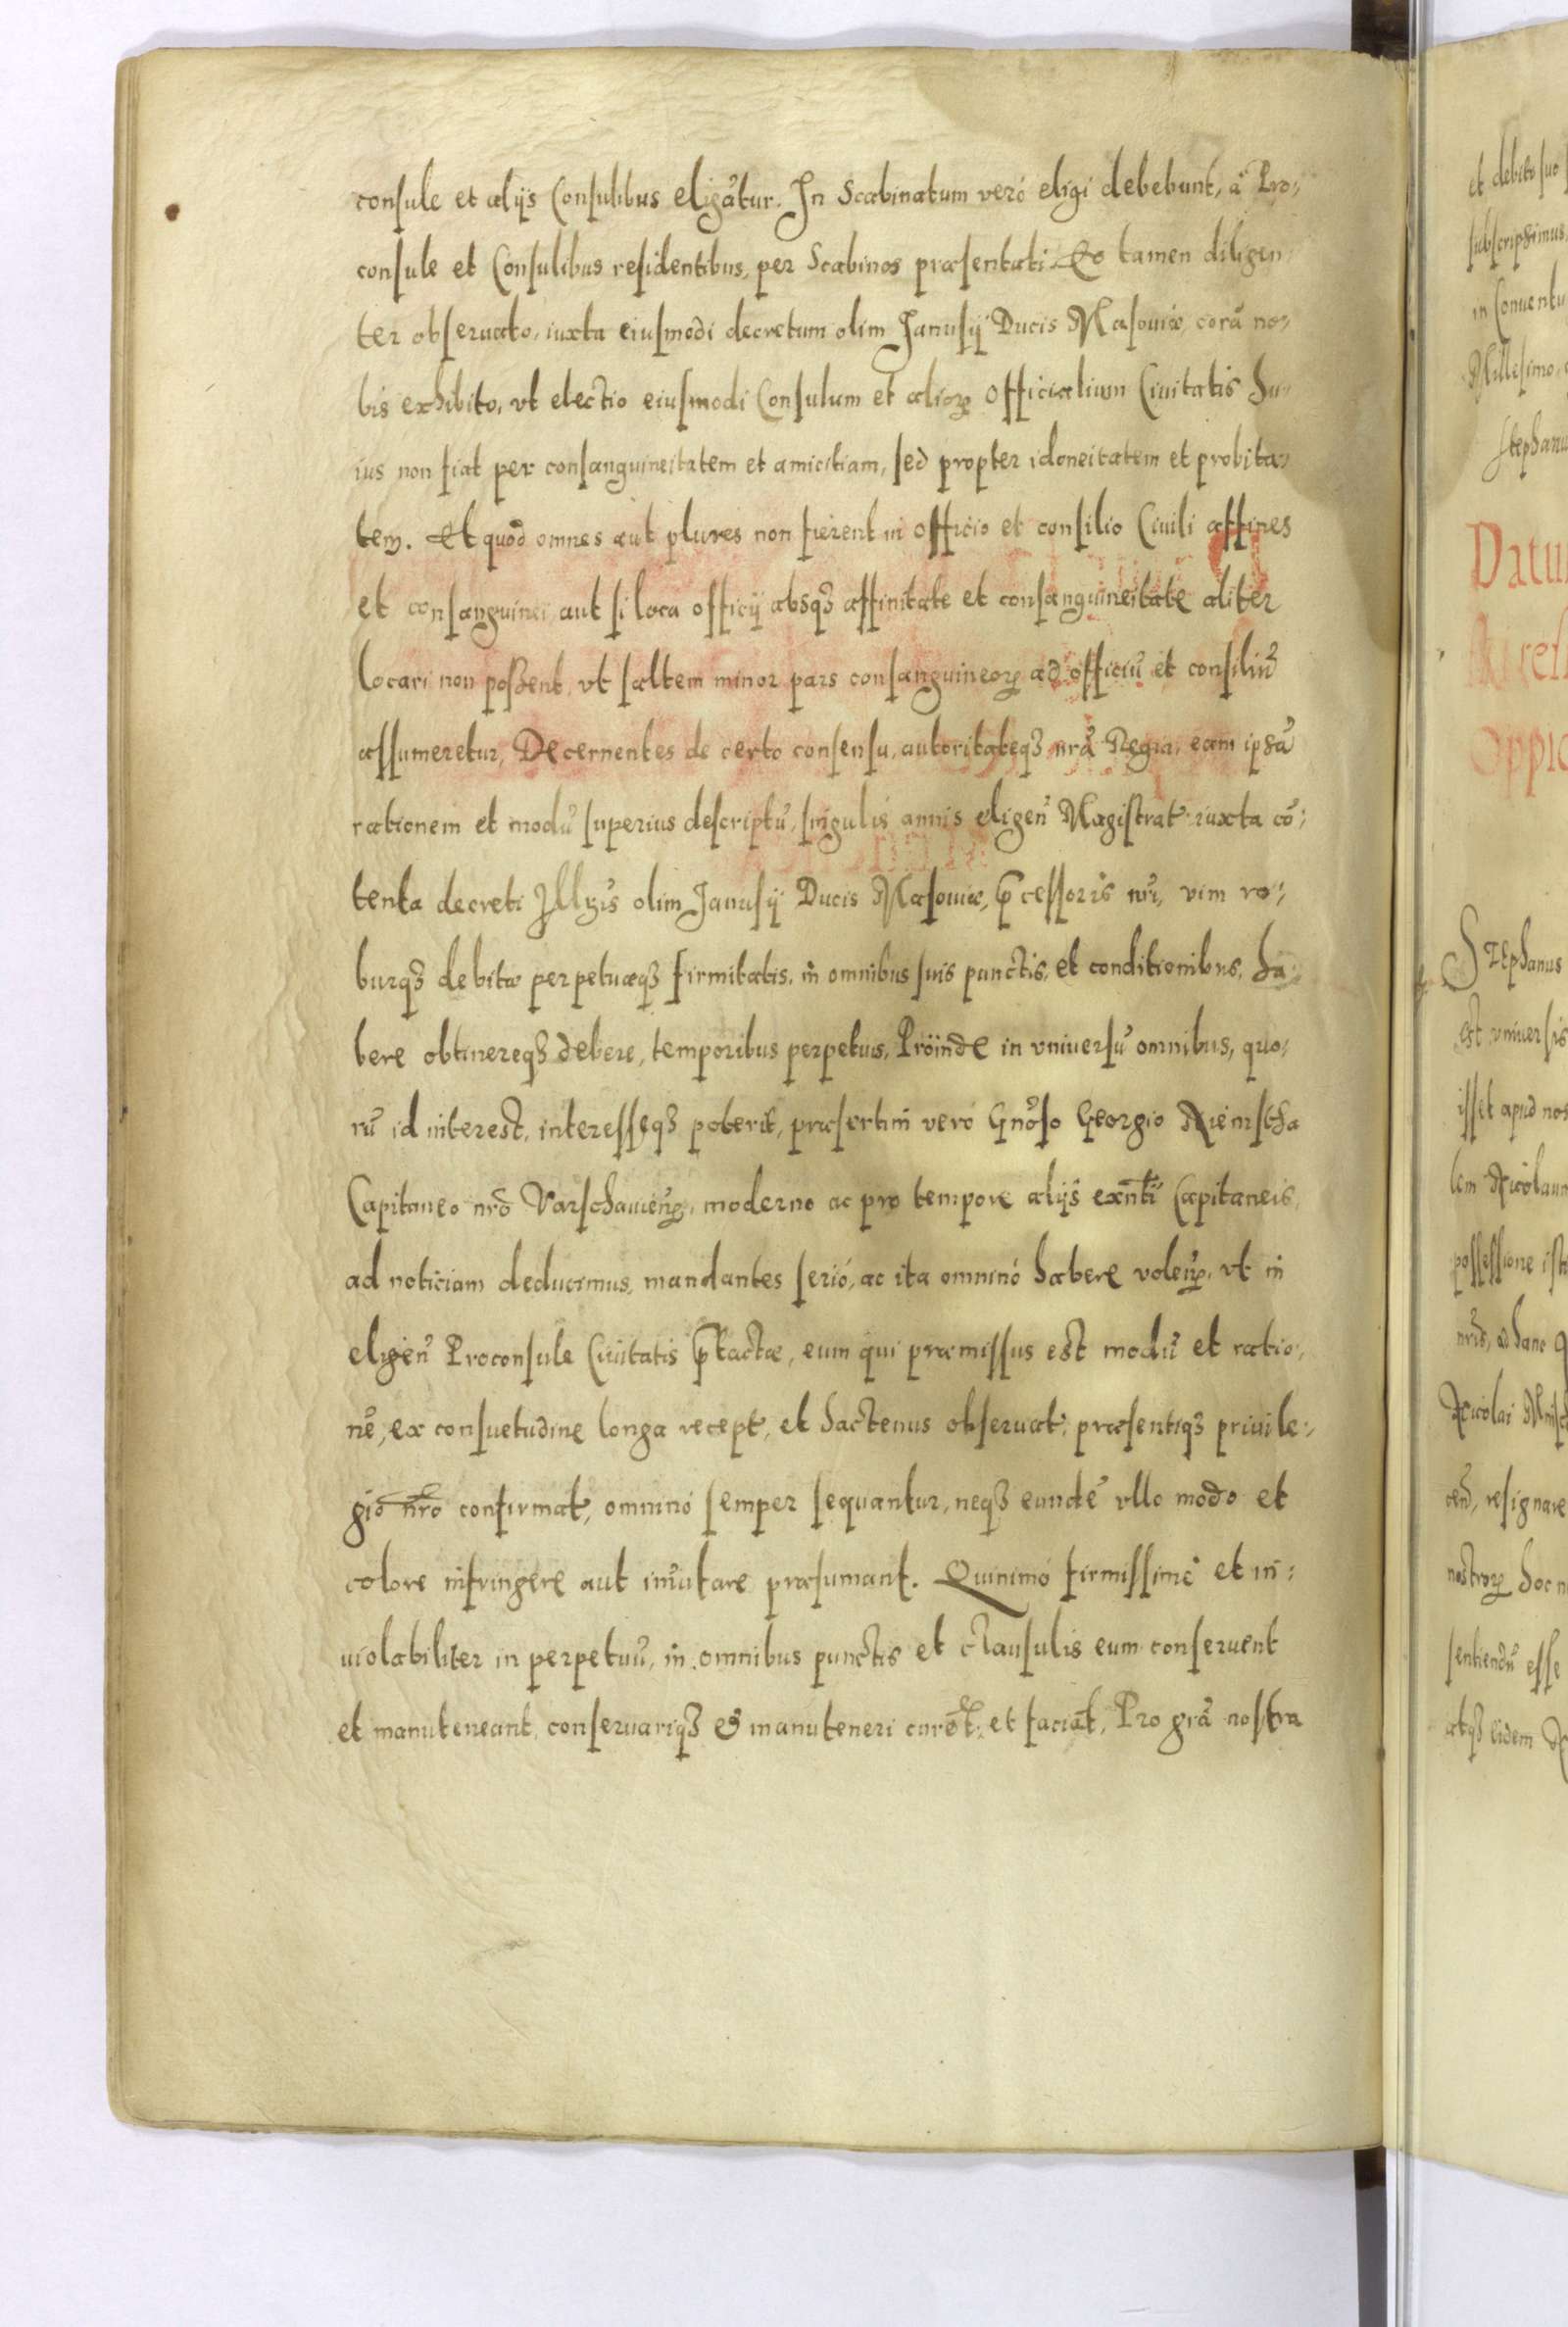 consule et alijs Consulibus eligãtur. In Scabinatum veró eligi debebunt, à Pro:
consule et Consulibus residentibus, per Scabinos præsentati. Eo tamen diligen
ter obseruato, iuxta eiusmodi decretum olim Janusij Ducis Masouiæ, corã no:
bis exhibito, vt electio eiusmodi Consulum et alioꝝ Officialium Ciuitatis hu:
ius non fiat per consanguineitatem et amicitiam, sed propter idoneitatem et probita:
tem. Et quòd omnes aut plures non fierent in officio et consilio Ciuili affines
et consanguinei, aut si loca officij absqꝫ affinitate et consanguineitate aliter
locari non possent, vt saltem minor pars consanguineoꝝ ad officiũ et consiliũ
assumeretur, Decernentes de certo consensu, autoritateqꝫ nrã Regia, eam ipsã
rationem et modũ superius descriptũ, singulis annis eligen̄ Magistrat. iuxta cõ:
tenta decreti Illr̃is olim Janusij Ducis Masouiæ, p̱cessoris nr̃i, vim ro:
burqꝫ debitæ perpetuæqꝫ firmitatis, in omnibus suis punctis, et conditionibus, ha:
bere obtinereqꝫ debere, temporibus perpetuis, Proinde in vniuersũ omnibus, quo:
rũ id interest, interesseqꝫ poterit, præsertim veró Gnõso Georgio Niemstha
Capitaneo nrõ Varschauien̄, moderno ac pro tempore alijs exñti Capitaneis,
ad noticiam deducimus, mandantes serió, ac ita omninó habere volen̄, vt in
eligen̄ Proconsule Ciuitatis p̱tactæ, eum qui præmissus est modũ et ratio:
nẽ, ex consuetudine longa recept, et hactenus obseruat, præsentiqꝫ priuile:
gio nrõ confirmat, omninó semper sequantur, neqꝫ eundẽ vllo modo et
colore infringere aut im̃utare præsumant. Quinimó firmissimè et in:
uiolabiliter in perpetuũ, in omnibus punctis et clausulis eum conseruent
et manuteneant, conseruariqꝫ & manuteneri curẽt, et faciãt, Pro grã nostra